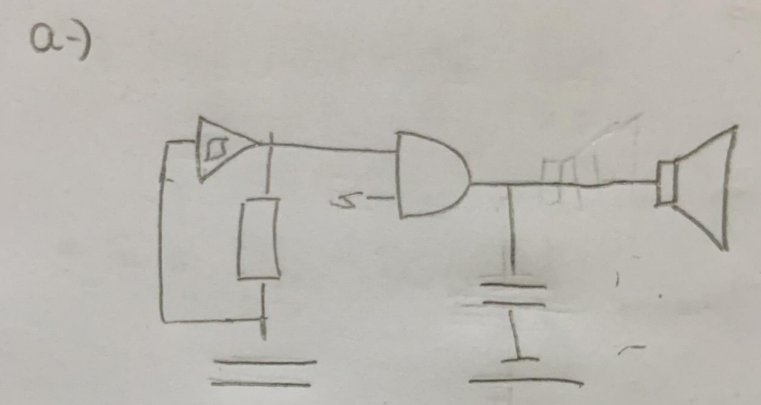 a-)
S